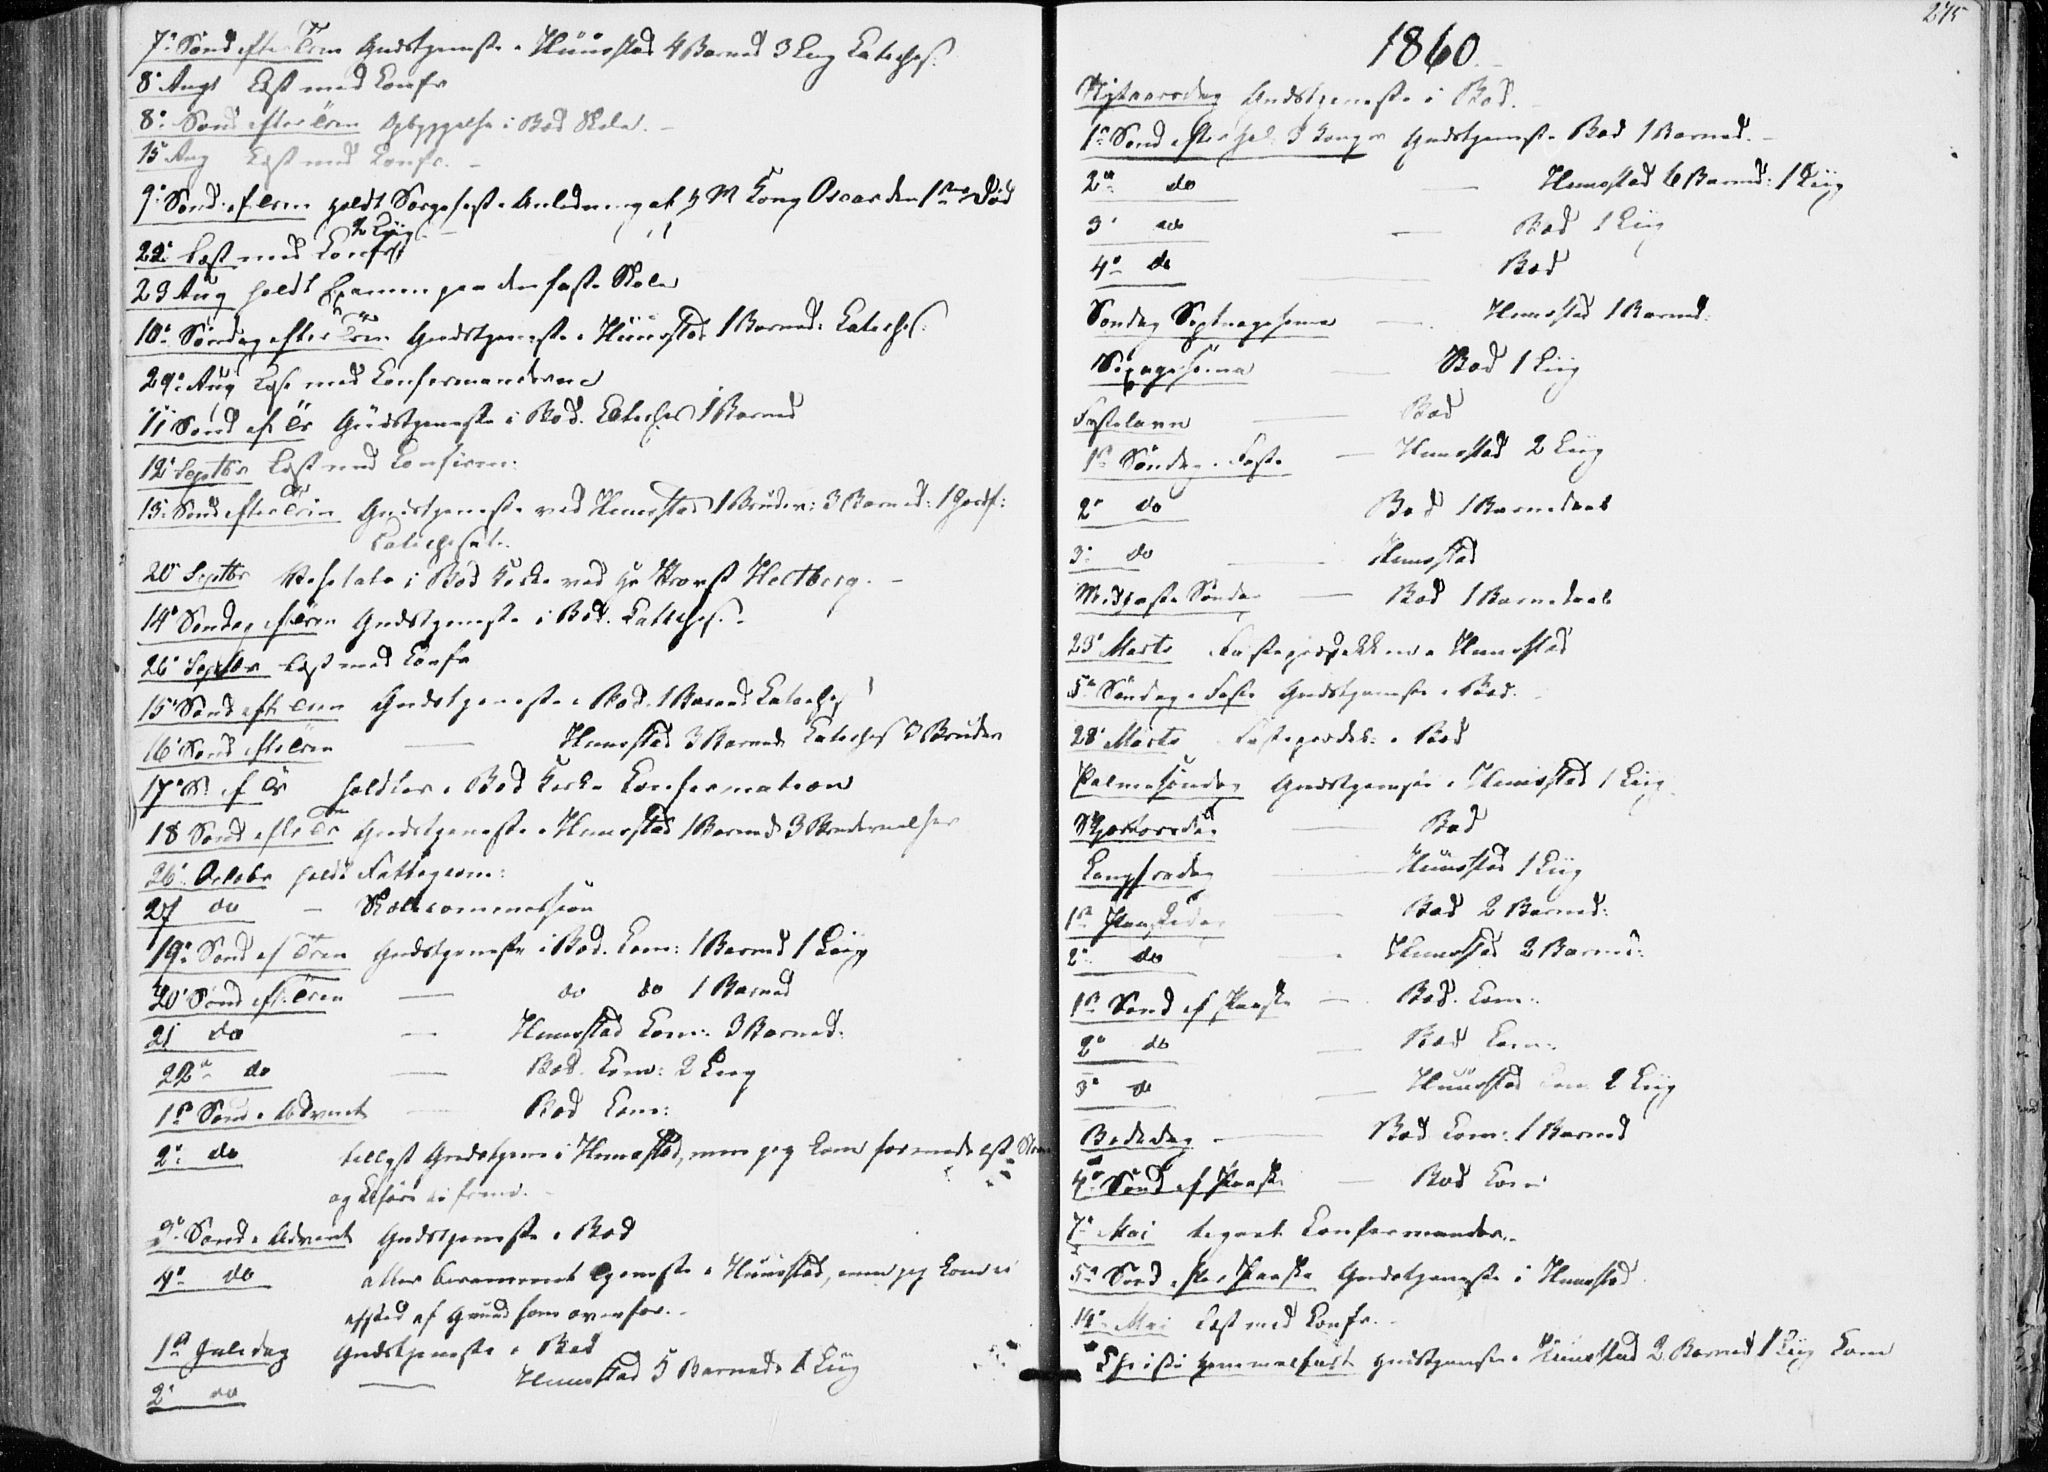 7de Sönd efter Trin Gudstjeneste i Hunestad 4 Barned 3 Liig Catechis:
8de Augt Læst med Confr
8de Sönd efter Trin Opbyggelse i Bod Skole. –
15 Aug Læst med Confr. –
9de Sönd. ef Trin holdt Sörgefest i Anledning af H M Kong Oscar den 1stes Död
2 Liig –
22de Læst med Confr
23 Aug holdt Examen paa den faste Skole
10de Søndag efter Trin Gudstjeneste i Hunestad 1 Barned: Catechis:
29de Aug Læst med Confirmanderne
11 Sönd ef Tr Gudstjeneste i Bod. Catechis 1 Barned
12te Septbr Læst med Confirm:
13de Sönd efter Trin Gudstjeneste ved Hunestad 1 Brudev: 3 Barned: 1 Jordf:
Catechisat.
20de Septbr Visitats i Bod Kirke ved Hr Provst Hertberg. –
14de Søndag ef Trin Gudstjeneste i Bod. Catechis. –
26de Septbr Læst med Confr
15de Sönd eft Trin Gudstjeneste i Bod. 1 Barned Catechis
16de Sönd eft Trin — Hunestad 3 Barned Catechis 3 Brudev
17de S. ef Tr holdtes i Bod Kirke Confirmation
18 Sönd eft Tr Gudstjeneste i Hunestad 1 Barned 3 Brudevielser
26de Octobr holdt Fattigcom:
27 do – Skolecommission
19de Sönd ef Trin Gudstjeneste i Bod. Com: 1 Barned 1 Liig
20de Sönd eft. Trin — do do 1 Barned
21 do — Hunestad Com: 3 Barned:
22de do — Bod. Com: 2 Liig
1ste Sönd i Advent — Bod Com:
2den do tillyst Gudstjen i Hunestad, men jeg kom formedelst Storm
og Uföre ei frem. –
3de Sönd i Advent Gudstjeneste i Bod
4de do atter berammet Tjeneste i Hunestad, men jeg kom ei
afsted af Grund som ovenfor. –
1ste Juledag Gudstjeneste i Bod
2den do — Hunestad 5 Barned 1 Liig
275
1860. –
Nytaarsdag Gudstjeneste i Bod. –
1ste Sönd efter Hel. 3 Konger Gudstjeneste Bod 1 Barned. –
2den do — Hunestad 6 Barned: 1 Liig
3de do — Bod 1 Liig
4de do — Bod
Søndag Septuagesima — Hunestad 1 Barned:
Sexagesima — Bod 1 Liig
Fastelavn — Bod
1ste Søndag i Faste — Hunestad 2 Liig
2den do Bod 1 Barnedaab
3de do — Hunestad
Midfaste Søndag — Bod 1 Barnedaab
23de Marts Fasteprædiken i Hunestad
5te Søndag i Faste Gudstjeneste i Bod. –
28de Marts Fastepræd: i Bod
Palmesöndag Gudstjeneste i Hunestad 1 Liig
Skjærtorsdag — Bod
Langfredag — Hunestad 1 Liig
1ste Paaskedag — Bod 2 Barned:
2den do — Hunestad 2 Barned:
1ste Sönd ef Paaske — Bod. Com:
2den do — Bod Com:
3de do — Hunestad Com 2 Liig
Bededag — Bod Com: 1 Barned
4de Sönd ef Paaske — Bod Com
7de Mai begynt Confirmander. –
5te Sönd efter Paaske Gudstjeneste i Hunestad
14de Mai Læst med Confr. –
Christi Himmelfart Gudstjeneste i Hunestad 2 Barned 1 Liig Com